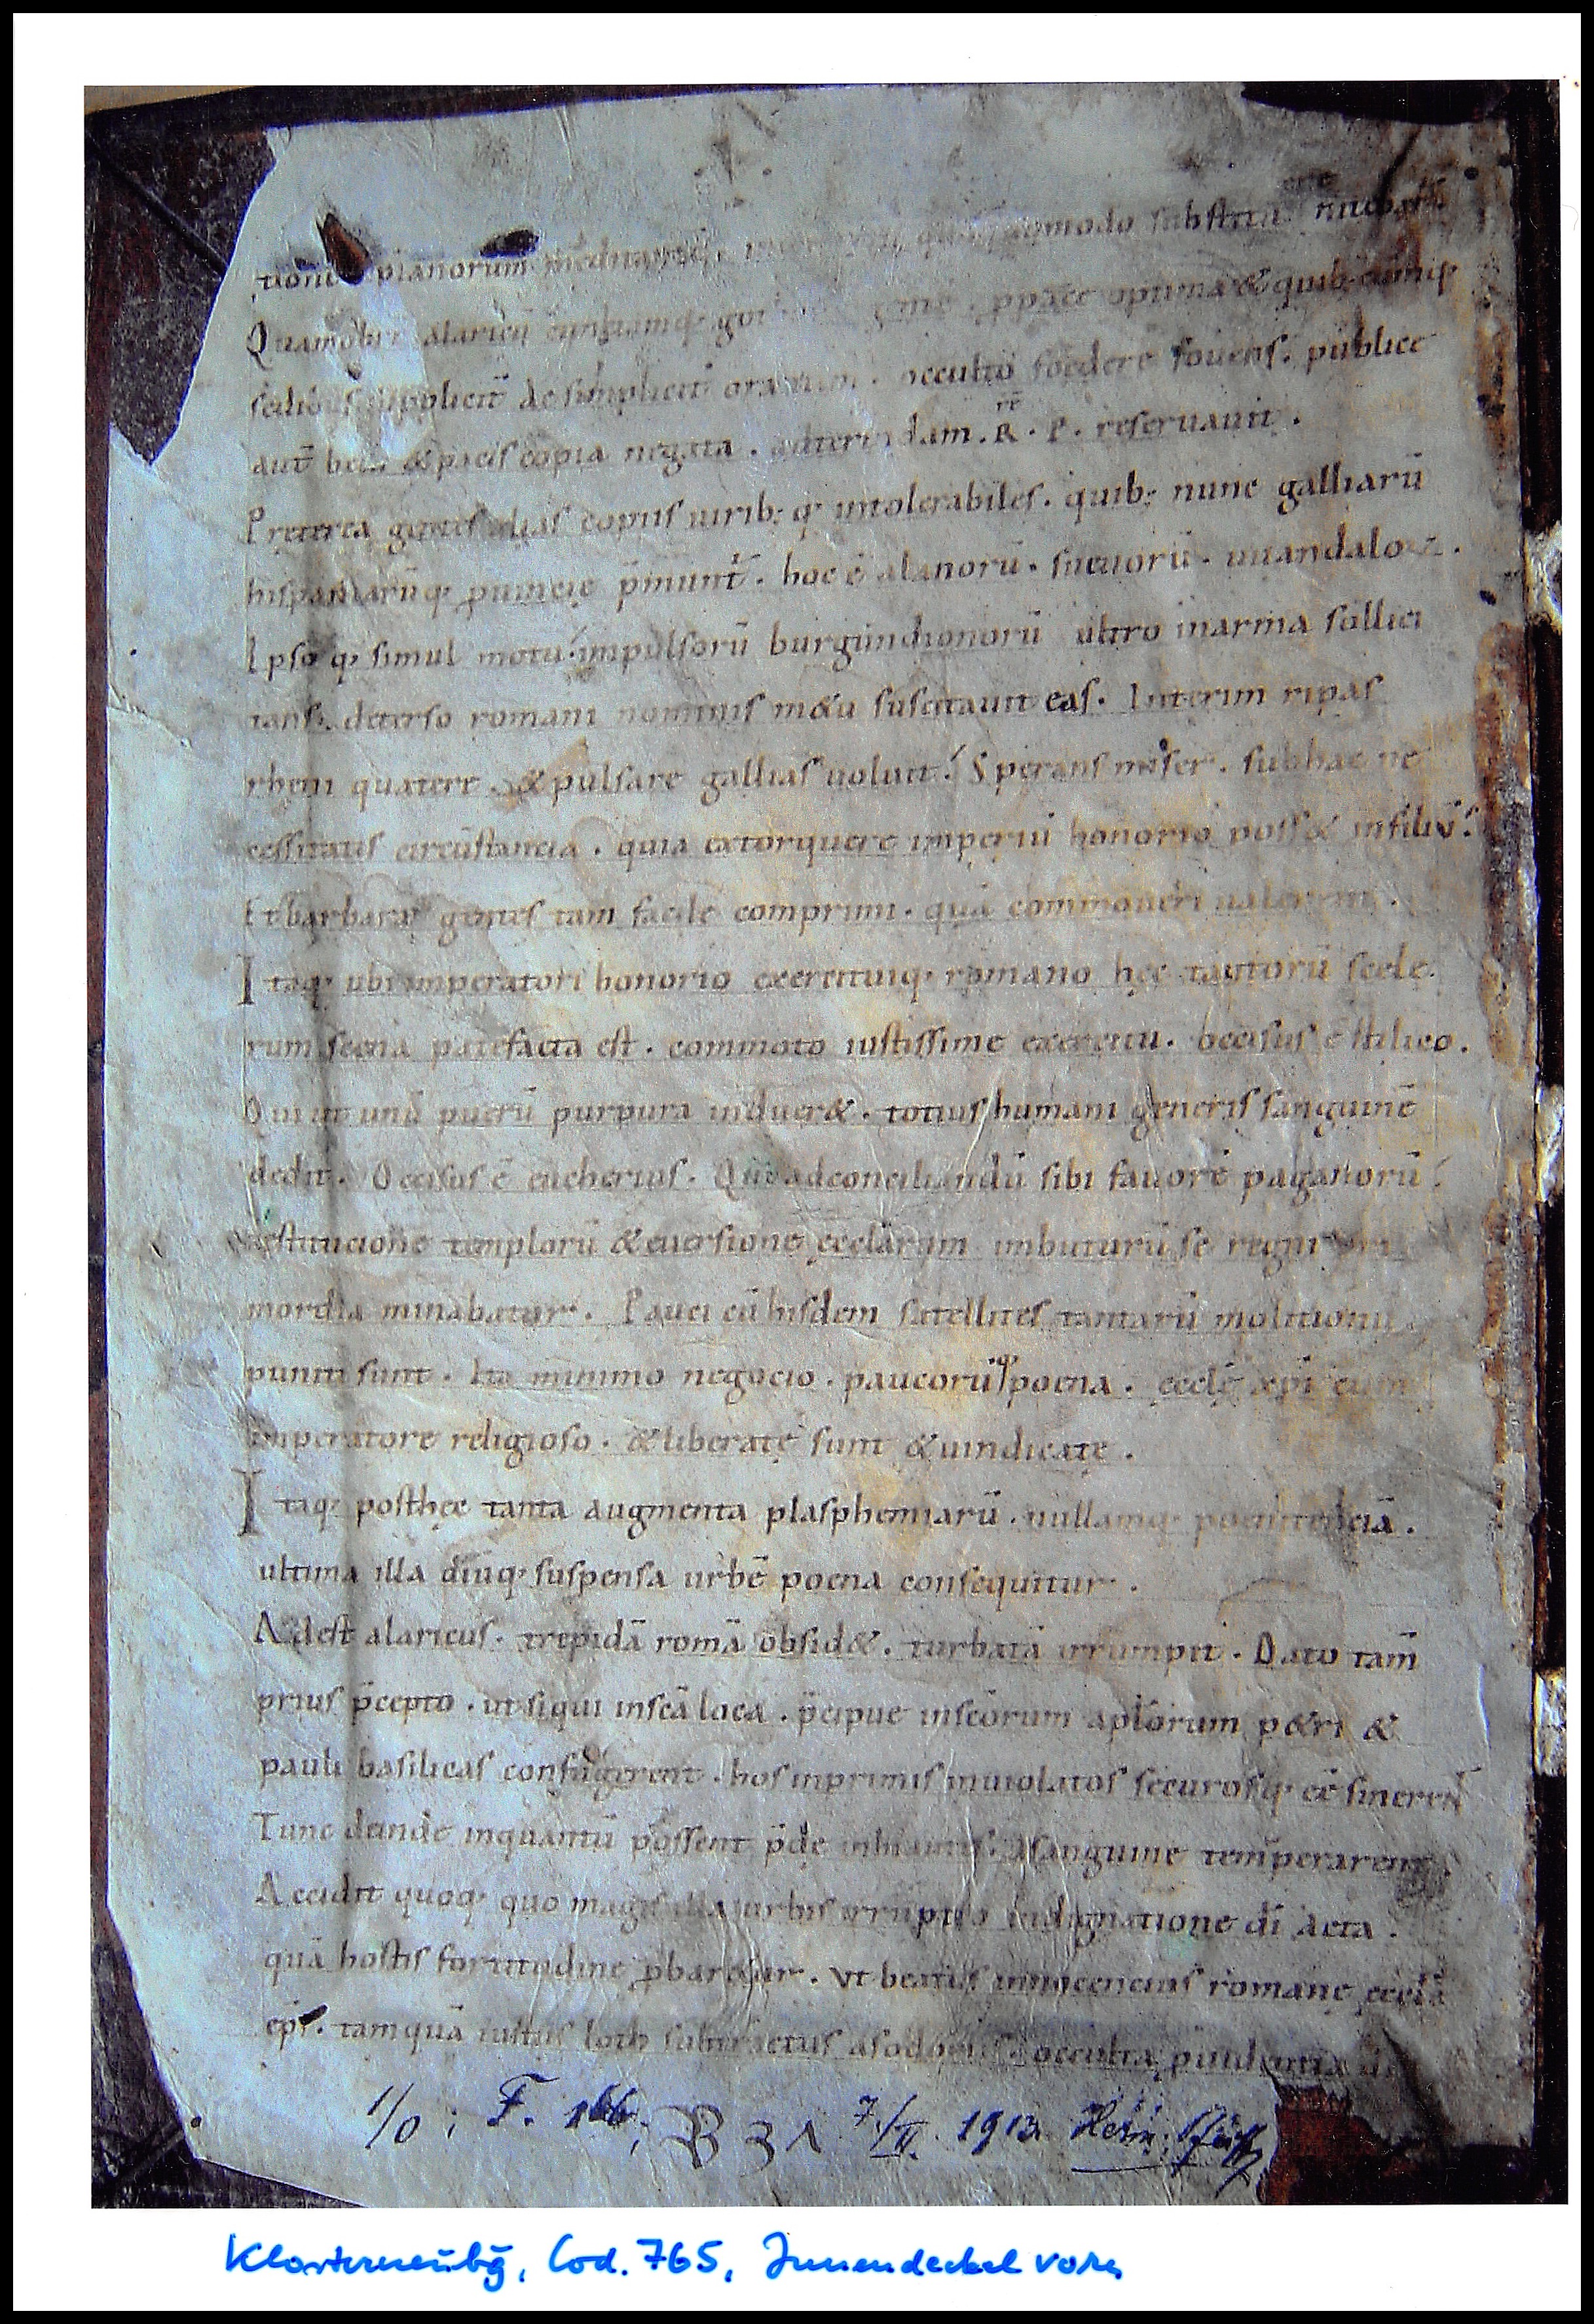 tione pianorum meditaretur. quoquomodo substitu niteba
Quamobrē alaricū cunctamq; got gentē. ppace optima & quib;cumq;
sedibus supplicit̄ ac simplicit̄ orantem. occulto foedere fouens. publice
aut̄ belli & pacis copia negata. adterendam. R̄. P. reseruauit.
Pręterea gentes alias copiis uirib; q; intolerabiles. quib; nunc galliarū
hispaniarūq; puincię p̄munt̄. hoc ē alanorū. sueuorū. uuandaloꝝ.
Ipso q; simul motu impulsorū burgundionorū ultro inarma sollici
tans. deterso romani nominis m&u suscitauit eas. Interim ripas
rheni quatere. & pulsare gallias uoluit. Sperans miser. subhac ne
cessitatis circūstancia. quia extorquere imperiū honorio poss& infiliū.
Et barbarę gentes tam facile comprimi. quā commoueri ualerent.
Itaq; ubi imperatori honorio exercituiq; romano hęc tantorū scele
rum scena patefacta est. commoto iustissime exercitu. occisus ē stilico.
Qui ut unū puerū purpura induer&. totius humani generis sanguinē
dedit. Occisus ē eucherius. Qui adconciliandū sibi fauorē paganorū
restitucionē templorū & euersionę ęcclarum imbuturū se regni pri
mordia minabatur. Pauci cū hisdem satellites tantarū molitionū
puniti sunt. Ita minimo negocio. paucorūq; poena. ęcclę xpi cum
imperatore religioso. & liberatę sunt & uindicatę.
Itaq; posthęc tanta augmenta plasphemiarū. nullamq; poenitenciā.
ultima illa diuq; suspensa urbē poena consequitur.
Adest alaricus. trepidā romā obsid&. turbatā irrumpit. Dato tam̄
prius p̄cepto. ut siqui inscā loca. p̄cipue inscōrum aplorum p&ri &
pauli basilicas confugerent. hos inprimis inuiolatos securosq; eē sinerent
Tunc deinde inquantū possent p̄dę inhiantes. asanguine temperarent.
Accidit quoq; quo magis illa urbis irruptio indignatione dī acta.
quā hostis fortitudine pbar&ur. Vt beatus innocencius romanę ęcclā
ep̄s. tamquā iustus loth subtractus asodomis. occulta puidentia dī
1/0; F. 166; B 3 1 7./II. 1913
Klosterneubg, Cod. 765, Innendeckel vorn